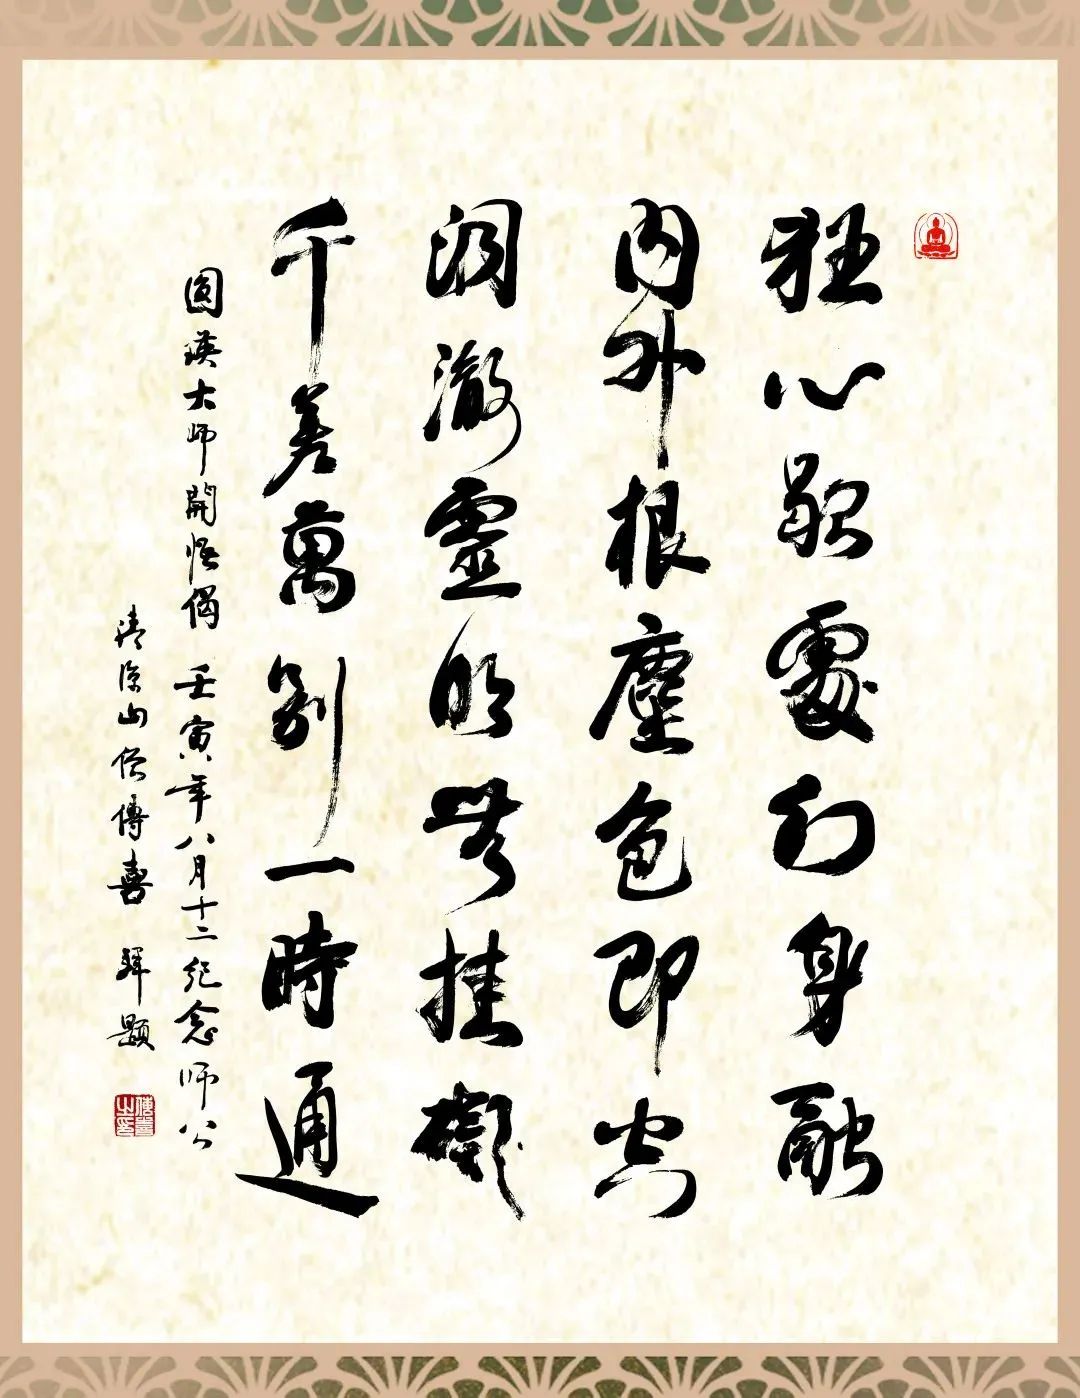 狂心歇處幻身融
內外根塵色即空
洞澈靈明無挂礙
千差萬別一時通
圓瑛大师開悟偈 壬寅年八月十二紀念师公
清涼山僧傳喜 拜題